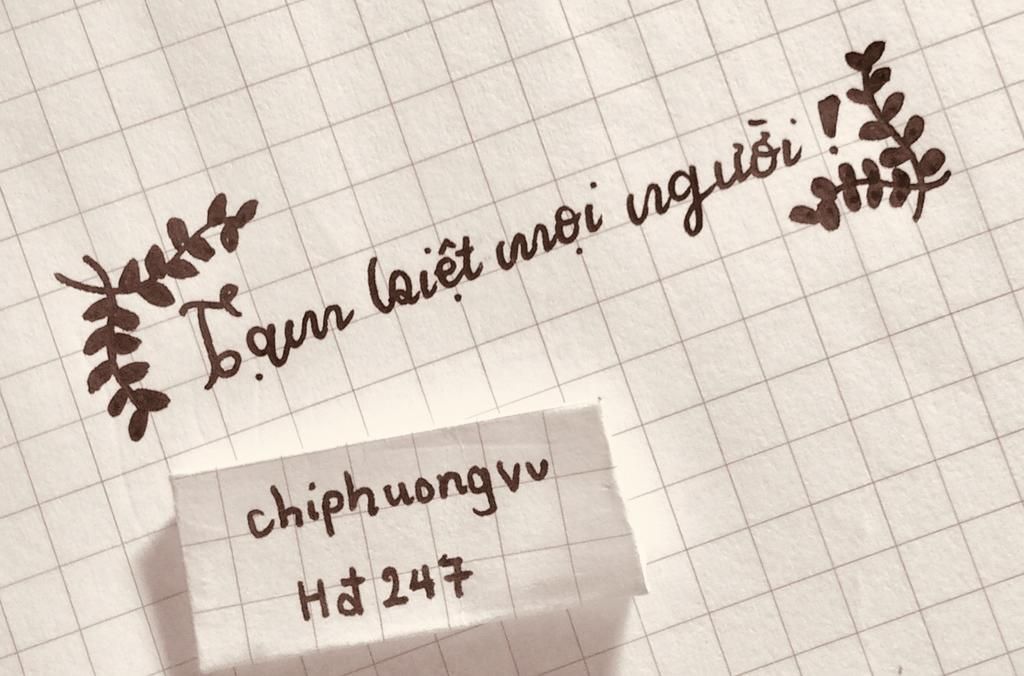 Tạm biệt mọi người !
chiphuongvv
Hđ 247